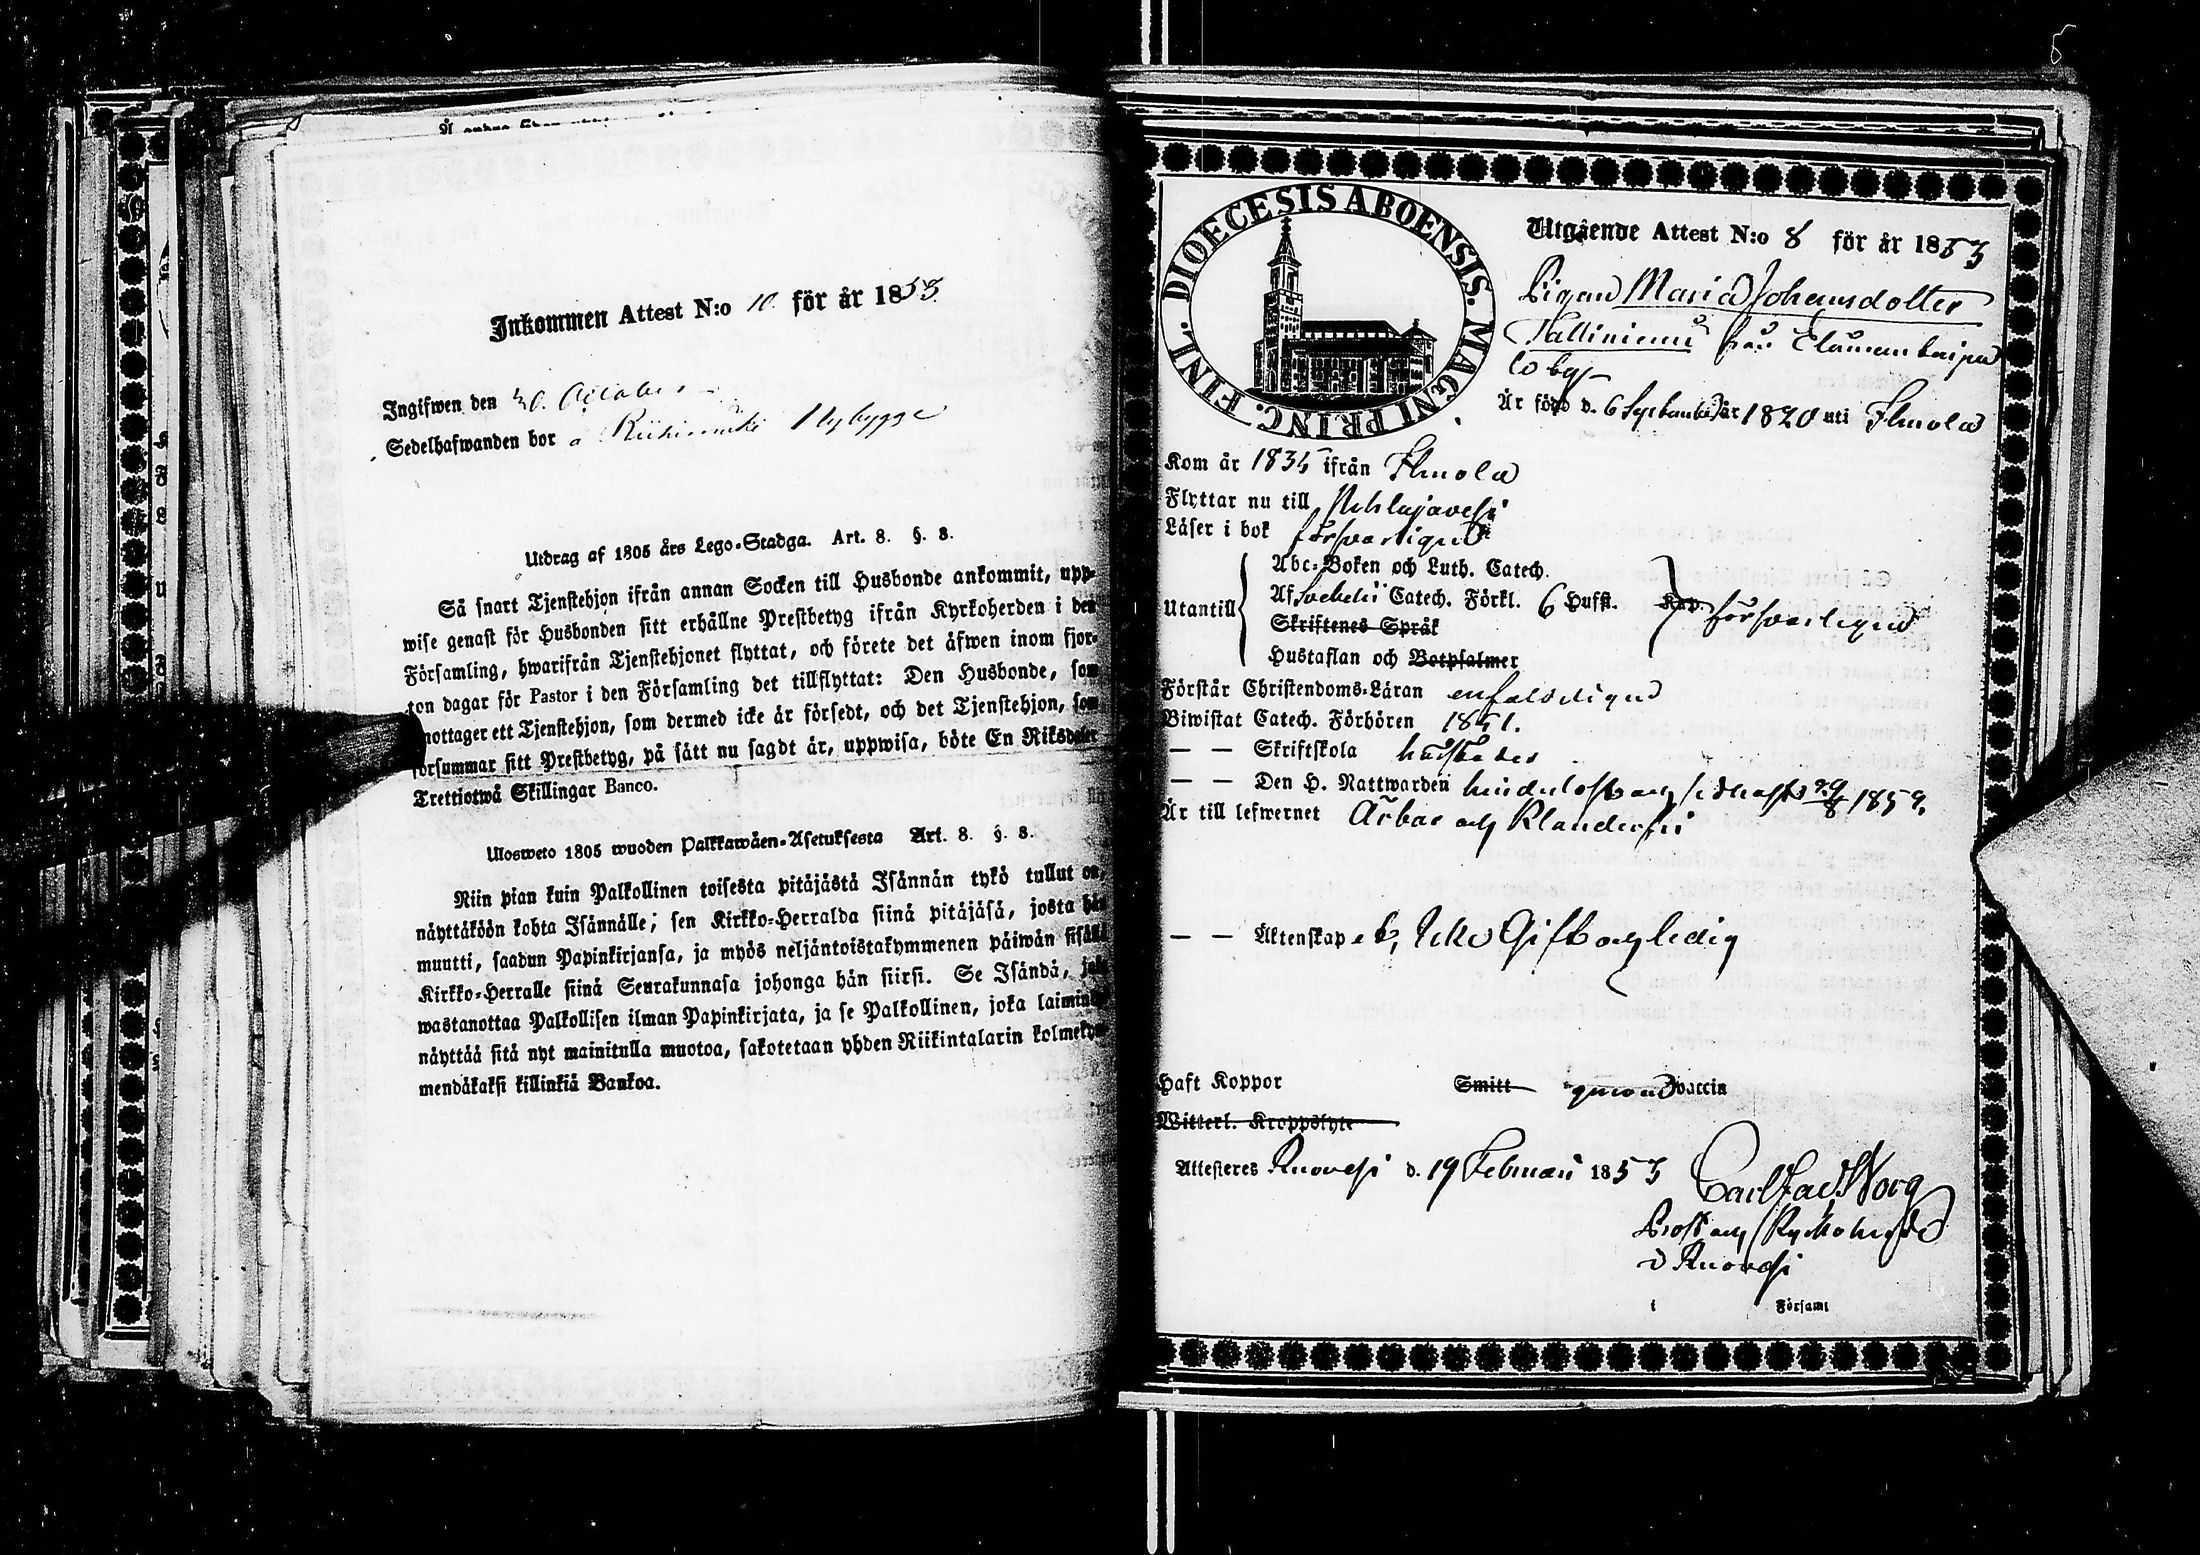 Inkommen Attest N:o 10. för år 1853.
Ingifwen den 30. October
Sedelhafwanden bor å Riihimäki Nybygge
Utdrag af 1805 års Lego-Stadga. Art. 8. §. 8.
Så snart Tjenstehjon ifrån annan Socken till Husbonde ankommit, upp-
wise genast för Husbonden sitt erhållne Prestbetyg ifrån Kyrkoherden i den
Församling, hwarifrån Tjenstehjonet flyttat, och förete det äfwen inom fjor-
ton dagar för Pastor i den Församling det tillflyttat: Den Husbonde, som
mottager ett Tjenstehjon, som dermed icke är försedt, och det Tjenstehjon, som
försummar sitt Prestbetyg, på sätt nu sagdt är, uppwisa, böte En Riksdaler
Trettiotwå Skillingar Banco.
Ulosweto 1805 wuoden Palkkawäen-Asetuksesta Art. 8. §. 8.
Niin pian kuin Palkollinen toisesta pitäjästä Isännän tykö tullut on,
näyttäköön kohta Isännälle; sen Kirkko-Herralda siinä pitäjäsä, josta hän
muutti, saadun Papinkirjansa, ja myös neljäntoistakymmenen päiwän sisällä
Kirkko-Herralle siinä Seurakunnasa johonga hän siirsi. Se Isändä, joka
wastanottaa Palkollisen ilman Papinkirjata, ja se Palkollinen, joka laimin
näyttää sitä nyt mainitulla muotoa, sakotetaan yhden Riikintalarin kolmeky
mendäkaksi killinkiä Bankoa.
5
DIOECESIS ABOENSIS. MAGNI PRINC. FINL.
Utgående Attest N:o 8 för år 1853
Pigan Maria Johansdotter
Talliniemi från
by
Är född d. 6 September år 1820 uti Ilmola
Kom år 1835 ifrån Ilmola
Flyttar nu till
Läser i bok försvarligen
Utantill
Abc-Boken och Luth. Catech.
Af Svebelii Catech. Förkl. 6 Hufst. Kap. försvarligen
Skriftenes Språk
Hustaflan och Botpsalmer
Förstår Christendoms-Läran enfaldeligen
Biwistat Catech. Förhören 1851.
— — Skriftskola
— — Den H. Nattwarden
Är till lefwernet Ärbar och Klanderfri
— — Äktenskap ej, Icke Gift och ledig
Haft Koppor Smitt genom vaccin
Witterl. Kroppslyte
Attesteres Ruovesi d. 19 Februari 1853
Prost och Kyrkoherde
i Ruovesi
i Församl